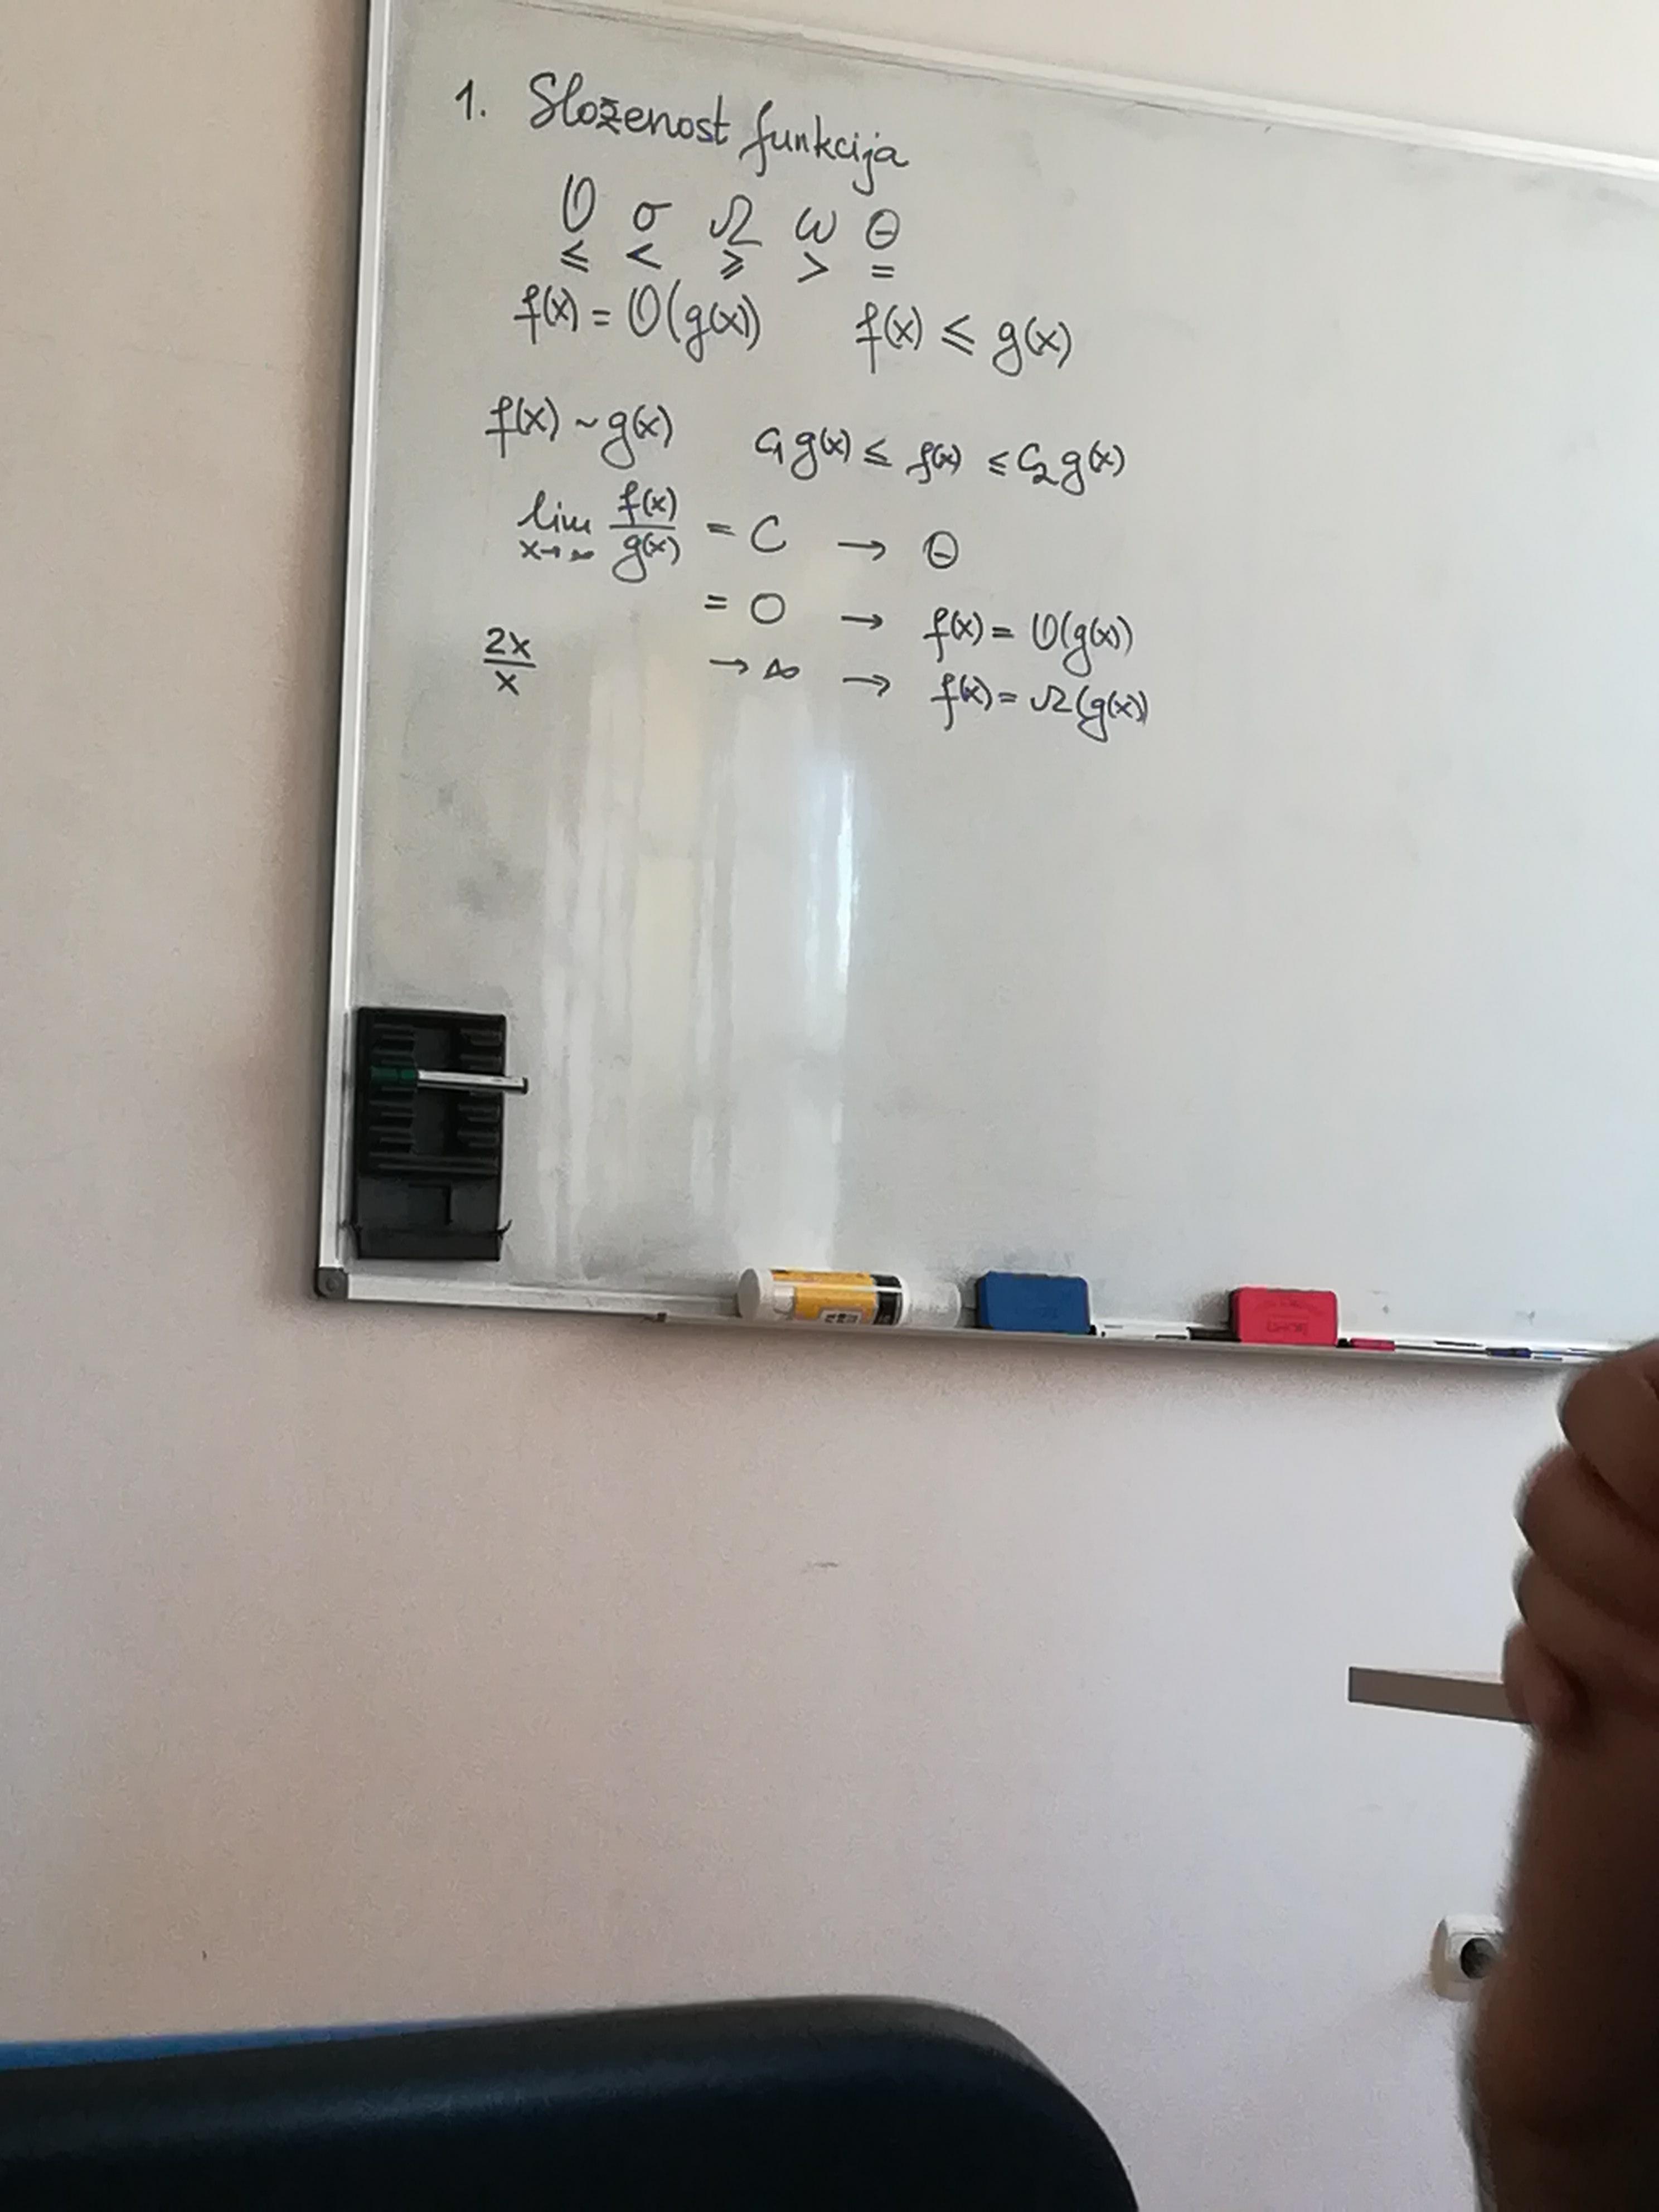 1. Složenost funkcija
O σ Ω ω Θ
≤ < ≥ > =
f(x) = O(g(x)) f(x) ≤ g(x)
f(x) ~ g(x) C₁g(x) ≤ f(x) ≤ C₂g(x)
lim x→∞ f(x)/g(x) = C → Θ
= 0 → f(x) = O(g(x))
2x/x → ∞ → f(x) = Ω(g(x))